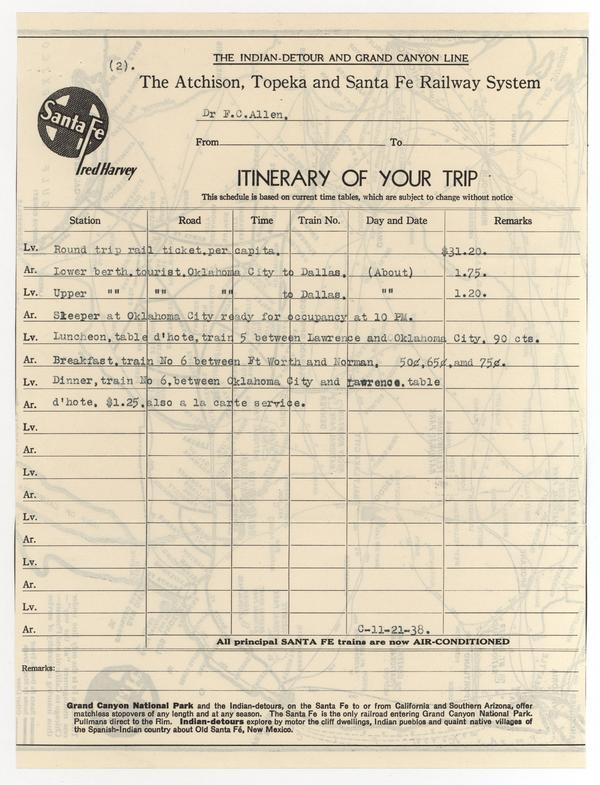 (2).
THE INDIAN-DETOUR AND GRAND CANYON LINE
The Atchison, Topeka and Santa Fe Railway System
Santa Fe
Fred Harvey
Dr F.C.Allen.
From To
ITINERARY OF YOUR TRIP
This schedule is based on current time tables, which are subject to change without notice
Station Road Time Train No. Day and Date Remarks
Lv. Round trip rail ticket.per capita. $31.20.
Ar. Lower berth.tourist.Oklahoma City to Dallas. (About) 1.75.
Lv. Upper "" "" "" to Dallas. "" 1.20.
Ar. Sleeper at Oklahoma City ready for occupancy at 10 PM.
Lv. Luncheon,table d'hote,train 5 between Lawrence and Oklahoma City. 90 cts.
Ar. Breakfast.train No 6 between Ft Worth and Norman. 50¢,65¢,amd 75¢.
Lv. Dinner,train No 6.between Oklahoma City and Lawrence.table
Ar. d'hote. $1.25.also a la carte service.
Lv.
Ar.
Lv.
Ar.
Lv.
Ar.
Lv.
Ar.
Lv.
Ar. C-11-21-38.
All principal SANTA FE trains are now AIR-CONDITIONED
Remarks:
Grand Canyon National Park and the Indian-detours, on the Santa Fe to or from California and Southern Arizona, offer
matchless stopovers of any length and at any season. The Santa Fe is the only railroad entering Grand Canyon National Park.
Pullmans direct to the Rim. Indian-detours explore by motor the cliff dwellings, Indian pueblos and quaint native villages of
the Spanish-Indian country about Old Santa Fé, New Mexico.